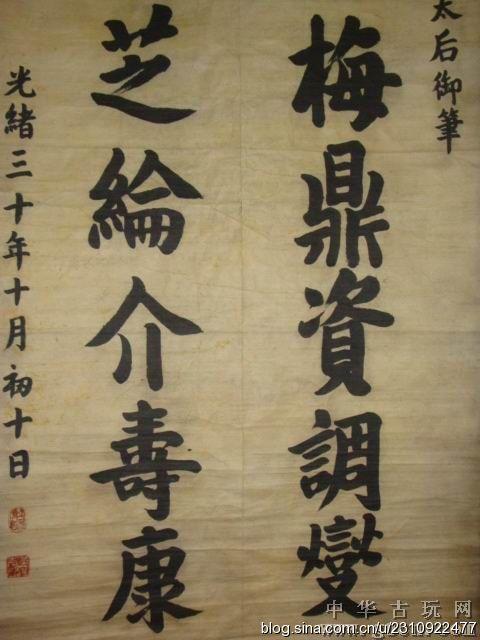 太后御筆
梅鼎資調燮
芝綸介壽康
光緒三十年十月初十日
中华古玩网
blog.sina.com.cn/u/2310922477